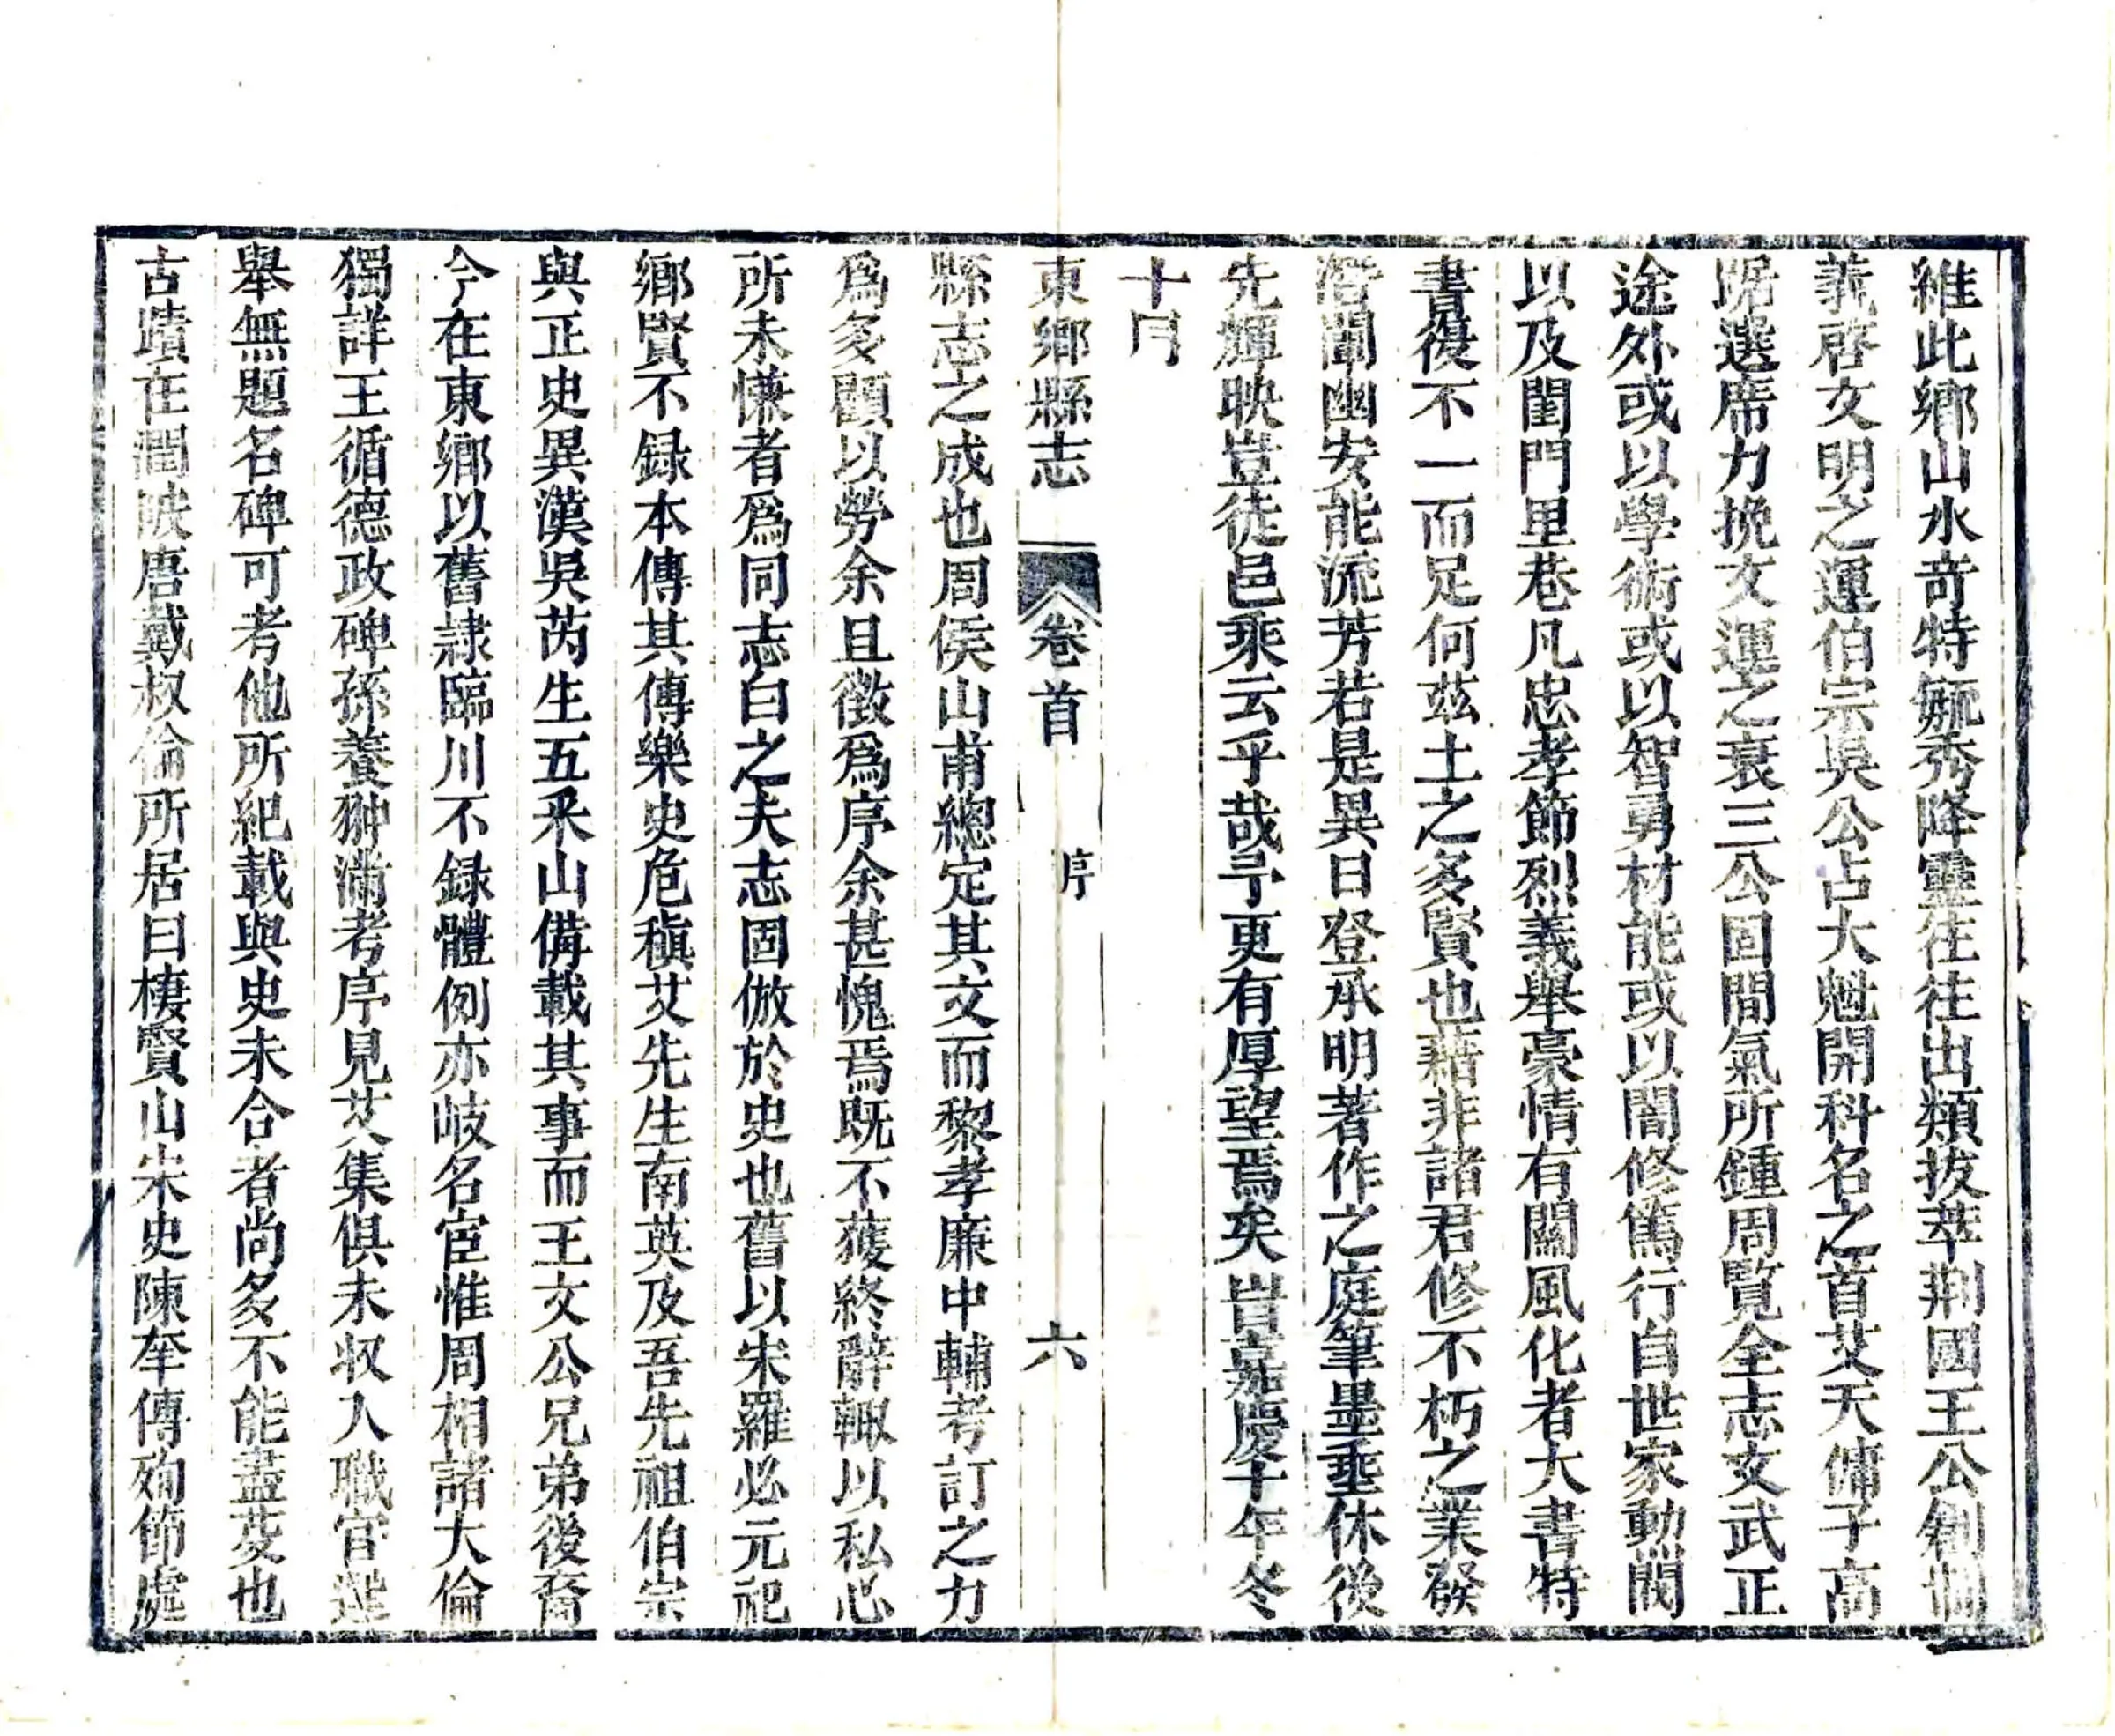 維此鄉山水奇特毓秀降靈往往出類拔萃荆國王公創
義啓文明之運伯宗吳公占大魁開科名之首艾天傭子高
踞選席力挽文運之衰三公固間氣所鍾周覽全志文武正
途外或以學術或以智勇材能或以闇修篤行自世家勳閥
以及閨門里巷凡忠孝節烈義舉豪情有關風化者大書特
書復不一而足何茲土之多賢也藉非諸君修不朽之業發
潛闡幽安能流芳若是異日登承明著作之庭筆墨垂休後
先輝映豈徒邑乘云乎哉予更有厚望焉矣嘉慶十年冬
十月
東鄉縣志
卷首
序
六
縣志之成也周侯山甫總定其文而黎孝廉中輔考訂之力
爲多顧以勞余且徵爲序余甚愧焉既不獲終辭輒以私心
所未慊者爲同志白之夫志固倣於史也舊以宋羅必元祀
鄉賢不録本傳其傳樂史危稹艾先生南英及吾先祖伯宗
與正史異漢吳芮生五釆山備載其事而王文公兄弟後裔
今在東鄉以舊隷臨川不録體例亦岐名宦惟周相諸大倫
獨詳王循德政碑孫養翀滿考序見艾集俱未収入職官選
舉無題名碑可考他所紀載與史未合者尚多不能盡茇也
古蹟在潤陂唐戴叔倫所居曰棲賢山宋史陳牽傳殉節處